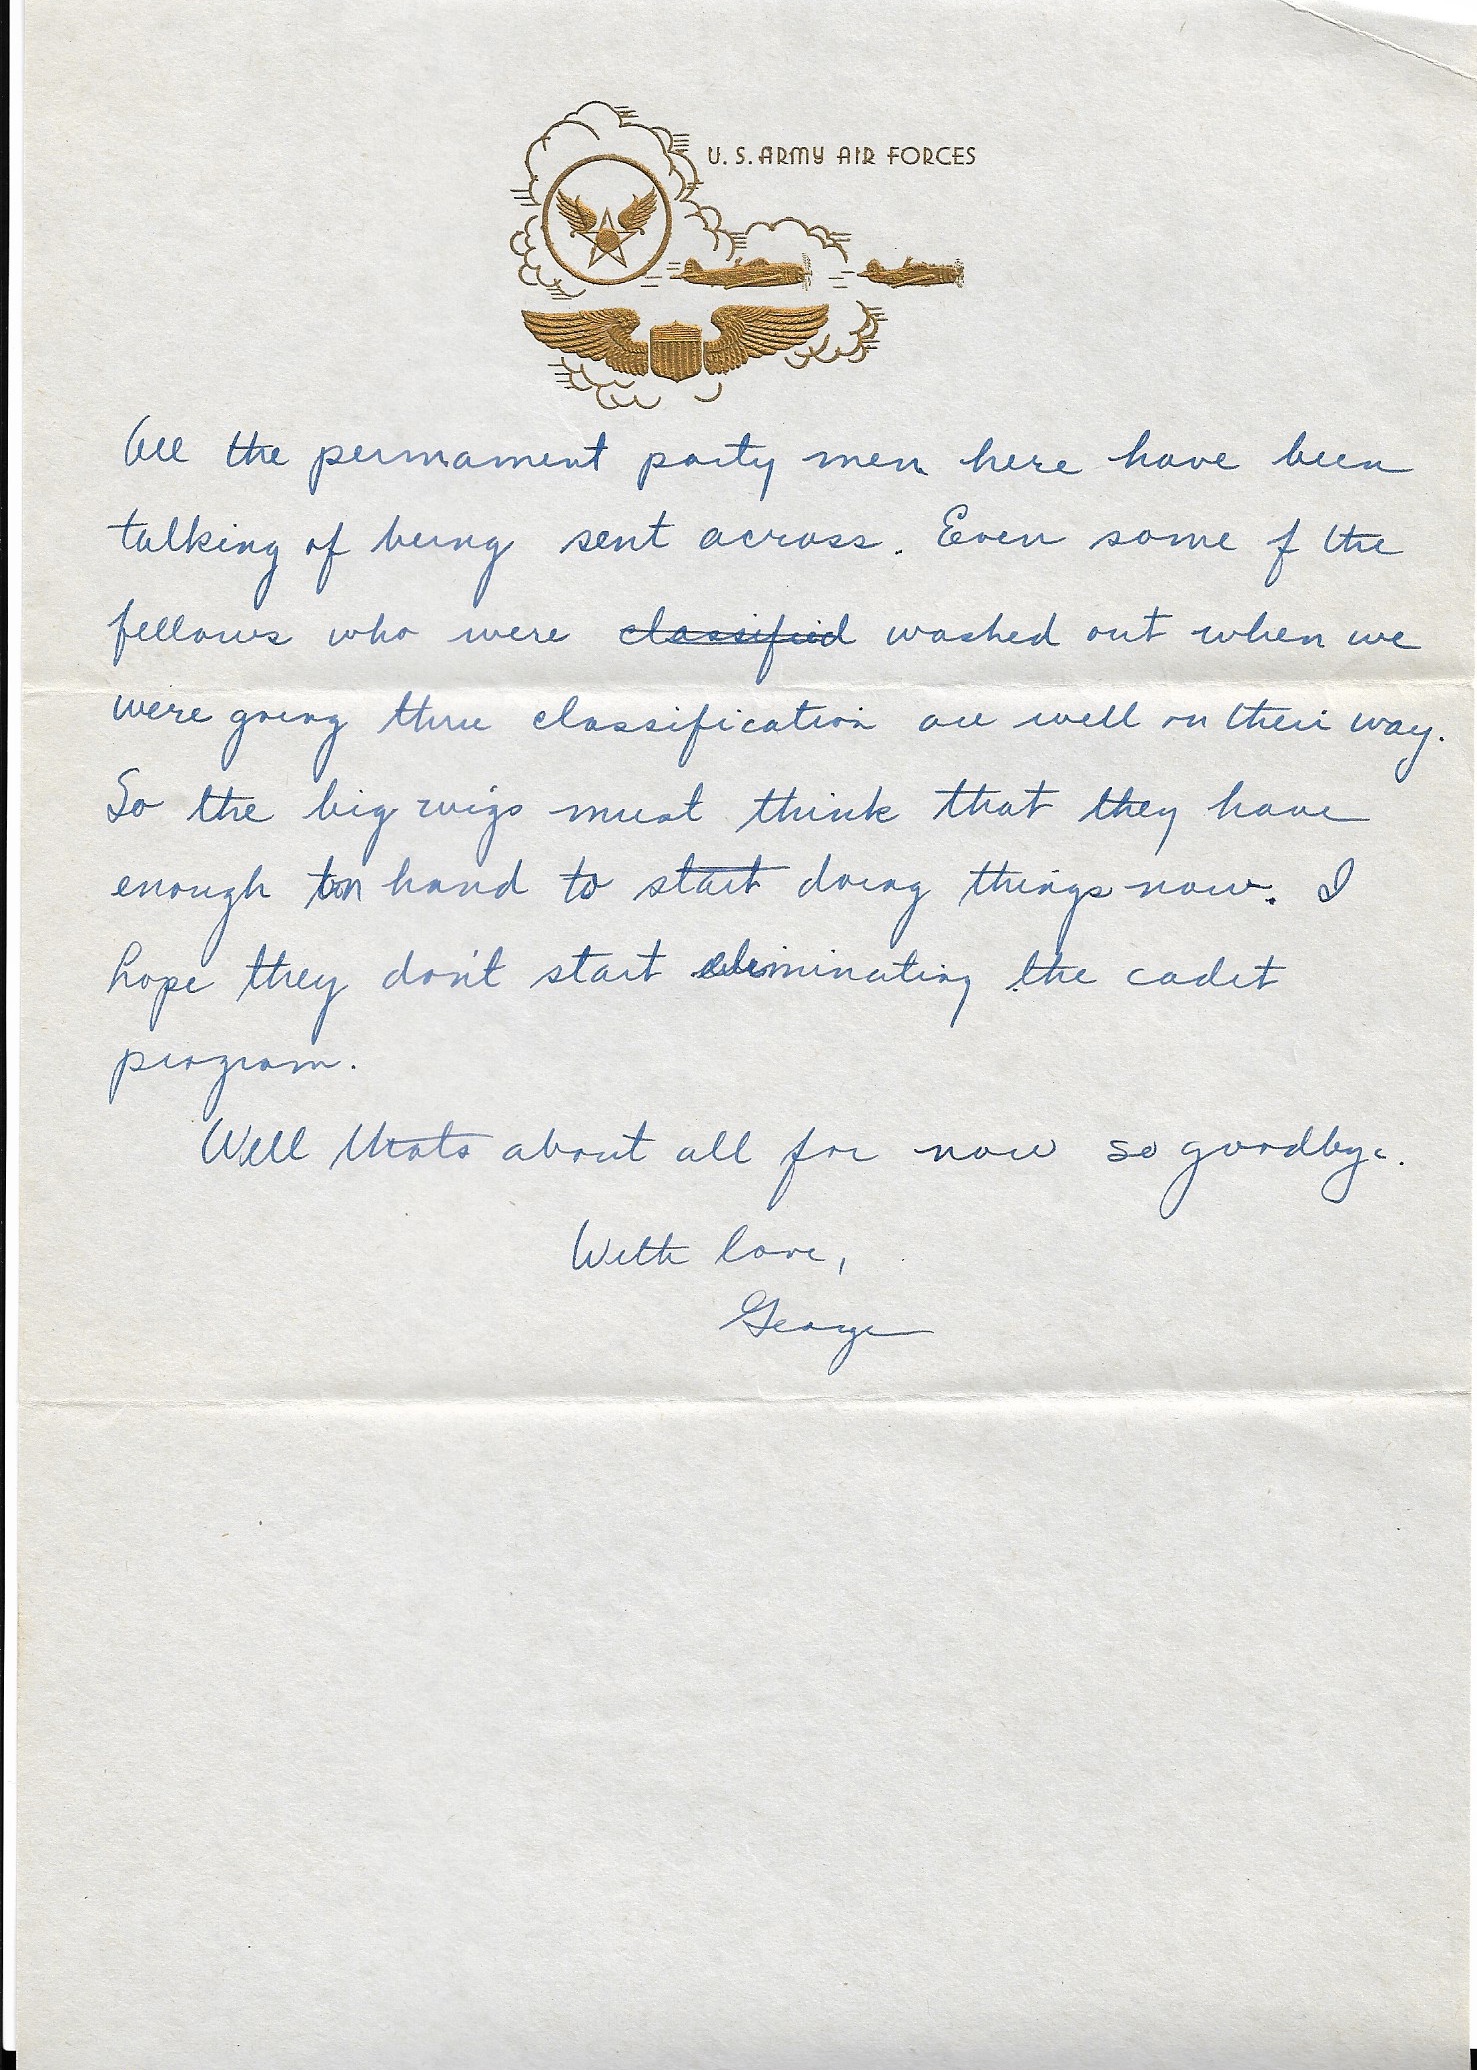 U. S. ARMY AIR FORCES
All the permament party men here have been
talking of being sent across. Even some of the
fellows who were ~~classified~~ washed out when we
were going thru classification are well on their way.
So the big wigs must think that they have
enough on hand to start doing things now. I
hope they don't start eliminating the cadet
program.
Well thats about all for now so goodbye.
With love,
George